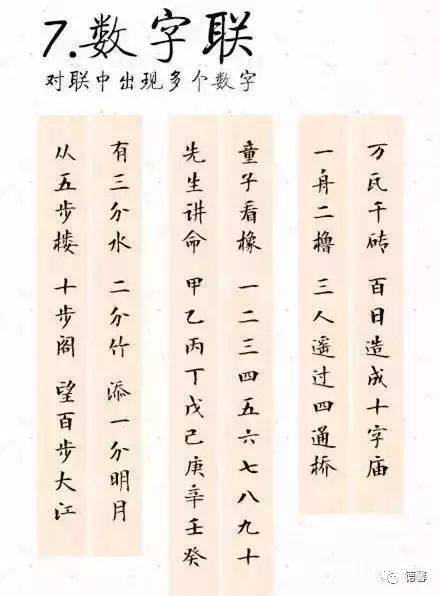 7.数字联
对联中出现多个数字
万瓦千砖 百日造成十字庙
一舟二橹 三人遥过四通桥
童子看橡 一二三四五六七八九十
先生讲命 甲乙丙丁戊己庚辛壬癸
有三分水 二分竹 添一分明月
从五步楼 十步阁 望百步大江
德馨